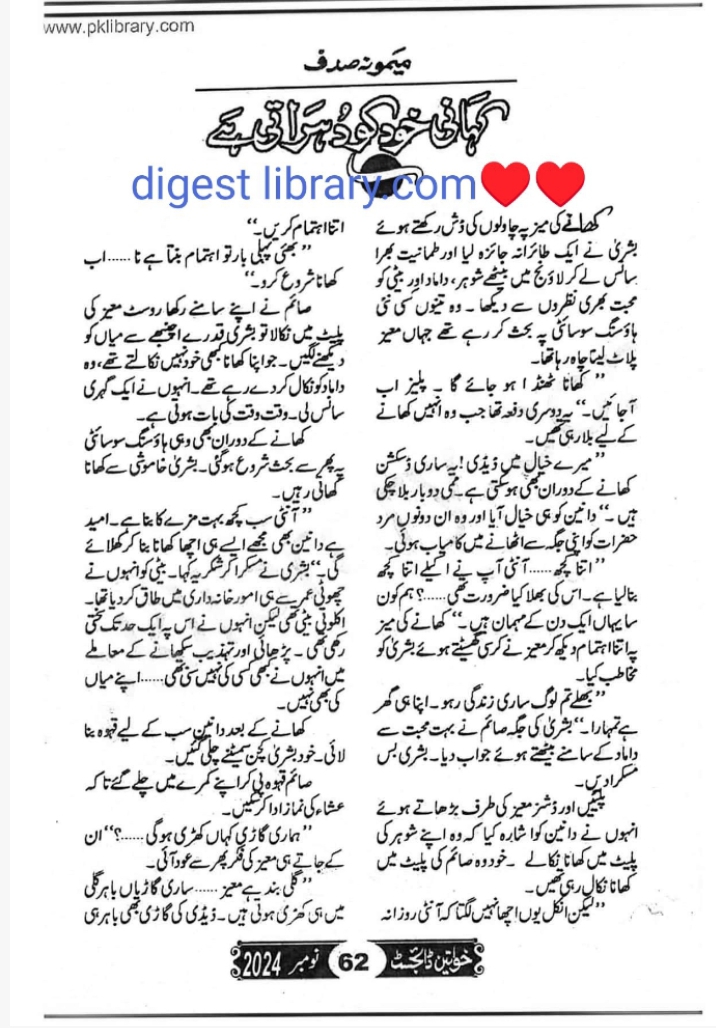 www.pklibrary.com
میمونہ صدف
کہانی خود کو دُہراتی ہے
digest library.com
کھانے کی میز پہ چاولوں کی ڈش رکھتے ہوئے
بشریٰ نے ایک طائرانہ جائزہ لیا اور طمانیت بھرا
سانس لے کر لاؤنج میں بیٹھے شوہر، داماد اور بیٹی کو
محبت بھری نظروں سے دیکھا۔ وہ تینوں کسی نئی
ہاؤسنگ سوسائٹی پہ بحث کر رہے تھے جہاں معیز
پلاٹ لینا چاہ رہا تھا۔
”کھانا ٹھنڈا ہو جائے گا۔ پلیز اب
آ جائیں۔“ یہ دوسری دفعہ تھا جب وہ انہیں کھانے
کے لیے بلا رہی تھیں۔
”میرے خیال میں ڈیڈی! یہ ساری ڈسکشن
کھانے کے دوران بھی ہو سکتی ہے۔ ممی دو بار بلا چکی
ہیں۔“ دانین کو ہی خیال آیا اور وہ ان دونوں مرد
حضرات کو اپنی جگہ سے اٹھانے میں کامیاب ہوئی۔
”اتنا کچھ...... آنٹی آپ نے اکیلے اتنا کچھ
بنا لیا ہے۔ اس کی بھلا کیا ضرورت تھی.....؟ ہم کون
سا یہاں ایک دن کے مہمان ہیں۔“ کھانے کی میز
پہ اتنا اہتمام دیکھ کر معیز نے کرسی گھسیٹتے ہوئے بشریٰ کو
مخاطب کیا۔
”بھلے تم لوگ ساری زندگی رہو۔ اپنا ہی گھر
ہے تمہارا۔“ بشریٰ کی جگہ صائم نے بہت محبت سے
داماد کے سامنے بیٹھتے ہوئے جواب دیا۔ بشریٰ بس
مسکرا دیں۔
پلیٹیں اور ڈشز معیز کی طرف بڑھاتے ہوئے
انہوں نے دانین کو اشارہ کیا کہ وہ اپنے شوہر کی
پلیٹ میں کھانا نکالے۔ خود وہ صائم کی پلیٹ میں
کھانا نکال رہی تھیں۔
”لیکن انکل یوں اچھا نہیں لگتا کہ آنٹی روزانہ
اتنا اہتمام کریں۔“
”بھئی پہلی بار تو اہتمام بنتا ہے نا...... اب
کھانا شروع کرو۔“
صائم نے اپنے سامنے رکھا روسٹ معیز کی
پلیٹ میں نکالا تو بشریٰ قدرے اچنبھے سے میاں کو
دیکھنے لگیں۔ جو اپنا کھانا کبھی خود نہیں نکالتے تھے، وہ
داماد کو نکال کر دے رہے تھے۔ انہوں نے ایک گہری
سانس لی۔ وقت وقت کی بات ہوتی ہے۔
کھانے کے دوران بھی وہی ہاؤسنگ سوسائٹی
پہ پھر سے بحث شروع ہو گئی۔ بشریٰ خاموشی سے کھانا
کھاتی رہیں۔
”آنٹی سب کچھ بہت مزے کا بنا ہے۔ امید
ہے دانین بھی مجھے ایسے ہی اچھا کھانا بنا کر کھلائے
گی۔“ بشریٰ نے مسکرا کر شکریہ کہا۔ بیٹی کو انہوں نے
چھوٹی عمر سے ہی امور خانہ داری میں طاق کر دیا تھا۔
اکلوتی بیٹی تھی لیکن انہوں نے اس پہ ایک حد تک سختی
رکھی تھی۔ پڑھائی اور تہذیب سکھانے کے معاملے
میں انہوں نے کبھی کسی کی نہیں سنی تھی...... اپنے میاں
کی بھی نہیں۔
کھانے کے بعد دانین سب کے لیے قہوہ بنا
لائی۔ خود بشریٰ کچن سمیٹنے چلی گئیں۔
صائم قہوہ پی کر اپنے کمرے میں چلے گئے تاکہ
عشاء کی نماز ادا کر سکیں۔
”ہماری گاڑی کہاں کھڑی ہو گی.....؟“ ان
کے جاتے ہی معیز کی فکر پھر سے عود آئی۔
”گلی بند ہے معیز...... ساری گاڑیاں باہر گلی
میں ہی کھڑی ہوتی ہیں۔ ڈیڈی کی گاڑی بھی باہر ہی
خواتین ڈائجسٹ 62 نومبر 2024